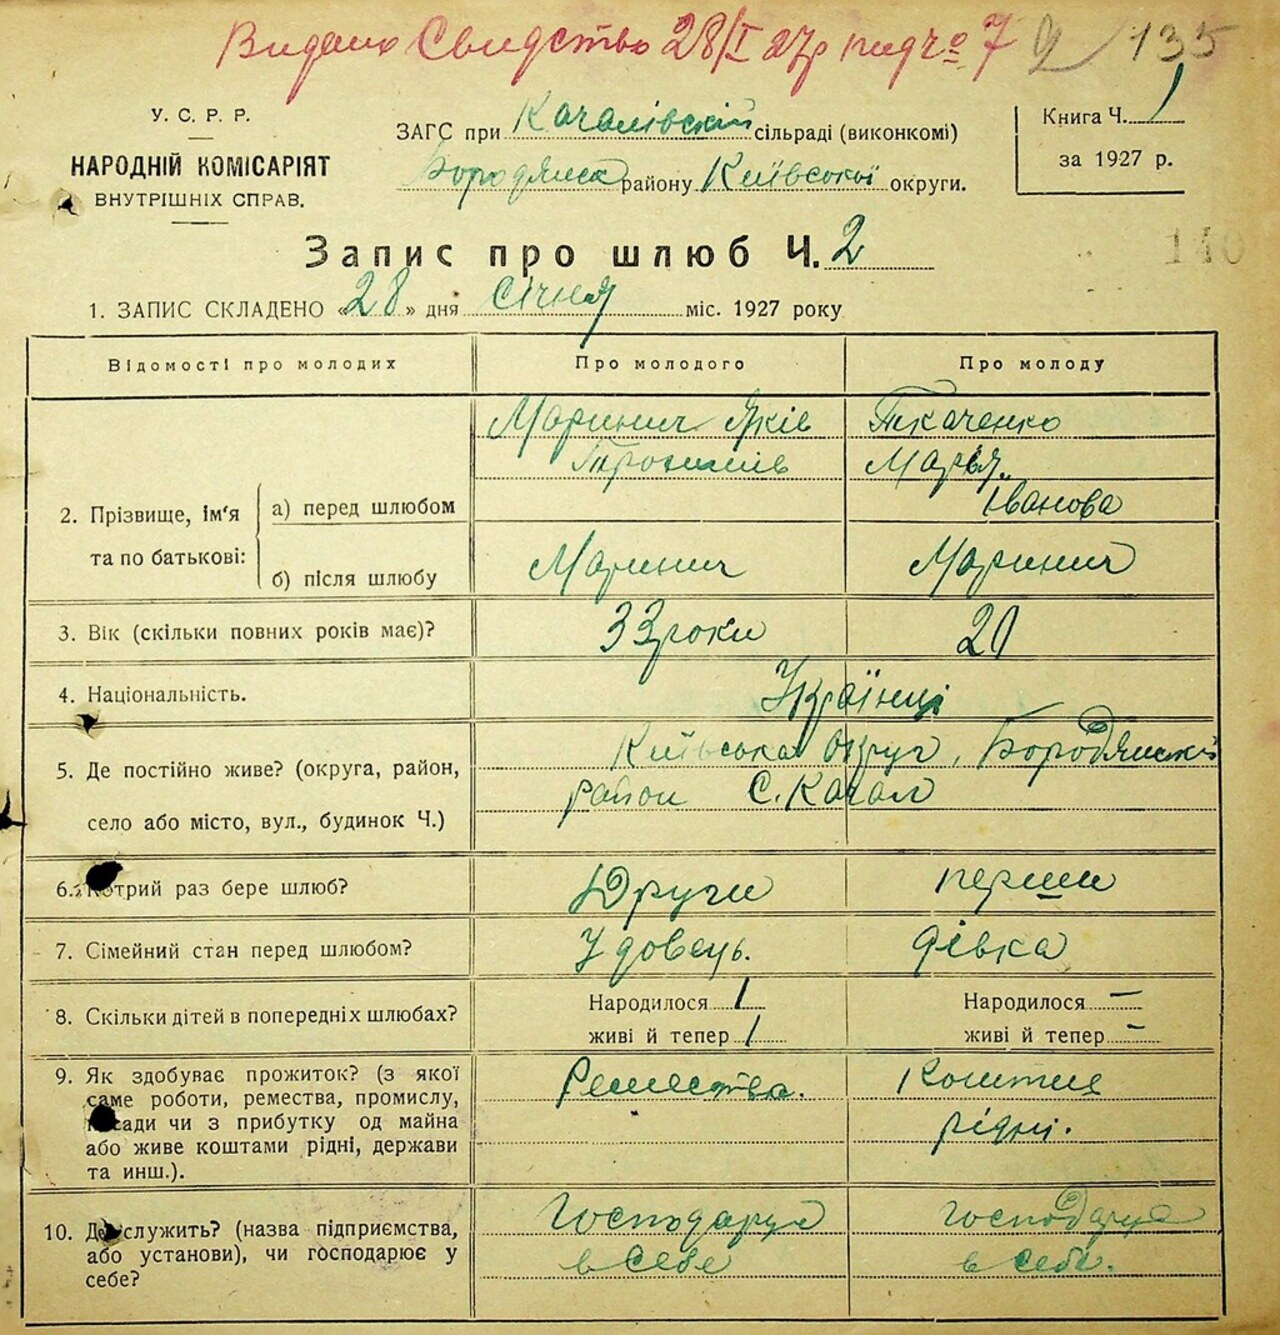 Видано Свидство 28/I 27р під ч° 7 135
У. С. Р. Р.
НАРОДНІЙ КОМІСАРІЯТ
ВНУТРІШНІХ СПРАВ.
ЗАГС при Качалівській сільраді (виконкомі)
Бородянск району Київської округи.
Книга Ч. 1
за 1927 р.
140
Запис про шлюб Ч. 2
1. ЗАПИС СКЛАДЕНО «28» дня Січня міс. 1927 року
Відомості про молодих Про молодого Про молоду
2. Прізвище, ім'я та по батькові:
а) перед шлюбом
Маринич Яків
Ткаченко
Марья
Іванова
б) після шлюбу Маринич Маринич
3. Вік (скільки повних років має)? 33 роки 20
4. Національність. Українці
5. Де постійно живе? (округа, район,
село або місто, вул., будинок Ч.)
Київська округ, Бородянский
район С. Качал
6. Котрий раз бере шлюб? Други перши
7. Сімейний стан перед шлюбом? Удовець. дівка
8. Скільки дітей в попередніх шлюбах?
Народилося 1 Народилося —
живі й тепер 1 живі й тепер —
9. Як здобуває прожиток? (з якої
саме роботи, ремества, промислу,
посади чи з прибутку од майна
або живе коштами рідні, держави
та инш.).
Ремества.
Коштия
рідні.
10. Де служить? (назва підприємства,
або установи), чи господарює у
себе?
Господарує
в себе
господарує
в себе.